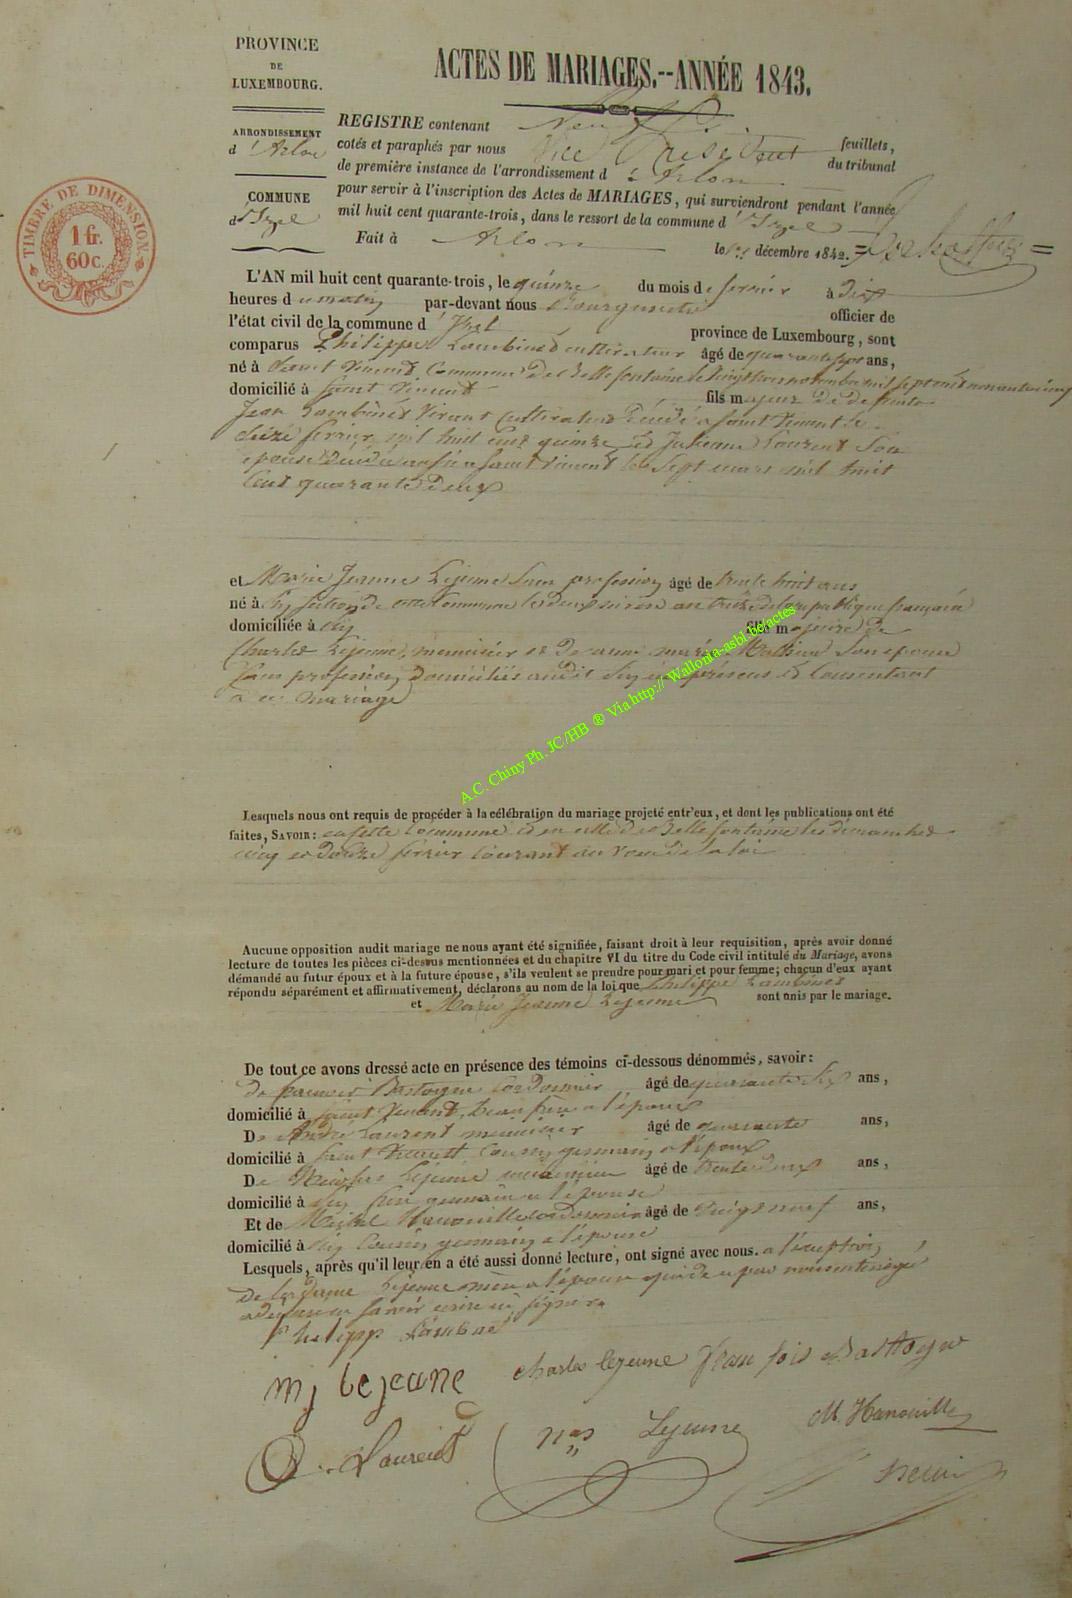 PROVINCE
DE
LUXEMBOURG.
ARRONDISSEMENT
d'Arlon
COMMUNE
d'Izel
TIMBRE DE DIMENSION.
1 fr.
60 c.
ACTES DE MARIAGES.--ANNÉE 1843.
REGISTRE contenant neuf feuillets,
cotés et paraphés par nous Vice Président du tribunal
de première instance de l'arrondissement d'Arlon
pour servir à l'inscription des Actes de MARIAGES, qui surviendront pendant l'année
mil huit cent quarante-trois, dans le ressort de la commune d'Izel
Fait à Arlon le décembre 1842.
L'AN mil huit cent quarante-trois, le quinze du mois de février à dix
heures du matin par-devant nous Bourgmestre officier de
l'état civil de la commune d'Izel province de Luxembourg, sont
comparus Philippe Lambinet cultivateur âgé de quarante sept ans,
né à Saint Vincent Commune de Bellefontaine le vingt trois novembre mil sept cent nonante cinq
domicilié à Saint Vincent fils majeur de défunts
Jean Lambinet vivant Cultivateur décédé à Saint Vincent le
seize février mil huit cent quinze et Laurent son
épouse décédée aussi à Saint Vincent le sept mars mil huit
cent quarante deux
et Marie Jeanne Lejeune sans profession âgé de trente huit ans
né à section de cette Commune le deux an treize de la république française
domiciliée à fille majeure de
Charles Lejeune, menuisier et de son épouse
sans profession domiciliés audit présens et Consentant
à ce mariage
A.C. Chiny Ph. JC/HB ® Via http:// Wallonia-asbl.be/actes
Lesquels nous ont requis de procéder à la célébration du mariage projeté entr'eux, et dont les publications ont été
faites, SAVOIR: en cette Commune et en celle de Bellefontaine les dimanches
cinq et douze février Courant au voeu de la loi
Aucune opposition audit mariage ne nous ayant été signifiée, faisant droit à leur requisition, après avoir donné
lecture de toutes les pièces ci-dessus mentionnées et du chapitre VI du titre du Code civil intitulé du Mariage, avons
démandé au futur époux et à la future épouse, s'ils veulent se prendre pour mari et pour femme; chacun d'eux ayant
répondu séparément et affirmativement, déclarons au nom de la loi que Philippe Lambinet
et Marie Jeanne Lejeune sont unis par le mariage.
De tout ce avons dressé acte en présence des témoins ci-dessous dénommés, savoir:
de Bastogne Cordonnier âgé de quarante six ans,
domicilié à Saint Vincent, beau frère à l'époux
De André Laurent menuisier âgé de quarante ans,
domicilié à Saint Vincent Cousin germain à l'époux
De Nicolas Lejeune menuisier âgé de trente deux ans,
domicilié à frère germain à l'épouse
Et de Michel Hanouille cordonnier âgé de vingt neuf ans,
domicilié à Cousin germain à l'épouse
Lesquels, après qu'il leur en a été aussi donné lecture, ont signé avec nous. à l'exception
de la dame Lejeune mère à l'épouse qui
savoir écrire ni signer
Philipp Lambinet
mj Lejeune Charles lejeune Jean fois Bastogne
A. Laurent Nas Lejeune M. Hanouille